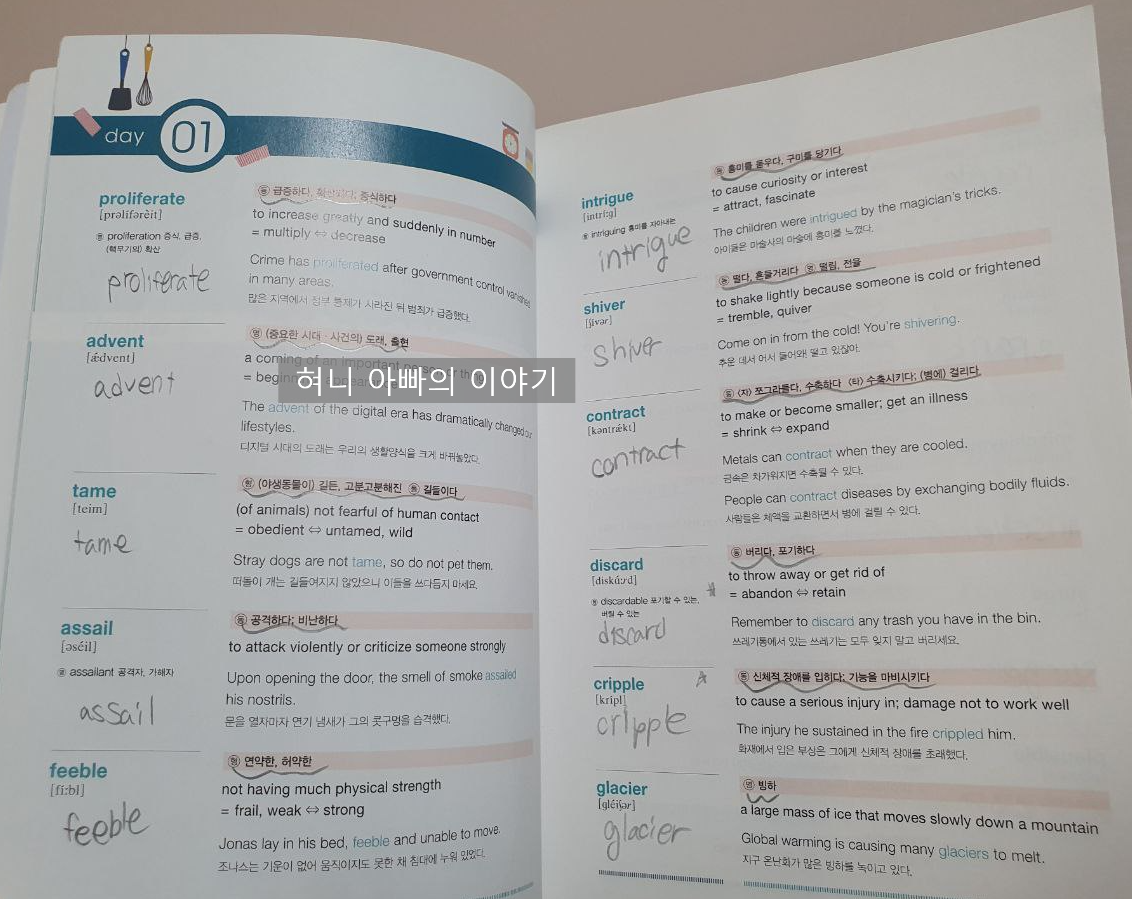 day 01
proliferate
[prəlífərèit]
명 proliferation 증식, 급증,
(핵무기의) 확산
proliferate
동 급증하다, 확산되다; 증식하다
to increase greatly and suddenly in number
= multiply ⇔ decrease
Crime has proliferated after government control vanished
in many areas.
많은 지역에서 정부 통제가 사라진 뒤 범죄가 급증했다.
advent
[ǽdvent]
advent
명 (중요한 시대·사건의) 도래, 출현
a coming of an important person or
= beginning
The advent of the digital era has dramatically changed our
lifestyles.
디지털 시대의 도래는 우리의 생활양식을 크게 바꿔놓았다.
혀니 아빠의 이야기
tame
[teim]
tame
형 (야생동물이) 길든, 고분고분해진 동 길들이다
(of animals) not fearful of human contact
= obedient ⇔ untamed, wild
Stray dogs are not tame, so do not pet them.
떠돌이 개는 길들여지지 않았으니 이들을 쓰다듬지 마세요.
assail
[əséil]
명 assailant 공격자, 가해자
assail
동 공격하다; 비난하다
to attack violently or criticize someone strongly
Upon opening the door, the smell of smoke assailed
his nostrils.
문을 열자마자 연기 냄새가 그의 콧구멍을 습격했다.
feeble
[fíːbl]
feeble
형 연약한, 허약한
not having much physical strength
= frail, weak ⇔ strong
Jonas lay in his bed, feeble and unable to move.
조나스는 기운이 없어 움직이지도 못한 채 침대에 누워 있었다.
intrigue
[intríːg]
형 intriguing 흥미를 자아내는
intrigue
동 흥미를 돋우다, 구미를 당기다
to cause curiosity or interest
= attract, fascinate
The children were intrigued by the magician's tricks.
아이들은 마술사의 마술에 흥미를 느꼈다.
shiver
[ʃívər]
shiver
동 떨다, 흔들거리다 명 떨림, 전율
to shake lightly because someone is cold or frightened
= tremble, quiver
Come on in from the cold! You're shivering.
추운 데서 어서 들어와! 떨고 있잖아.
contract
[kəntrǽkt]
contract
동 (자) 쪼그라들다, 수축하다 (타) 수축시키다; (병에) 걸리다
to make or become smaller; get an illness
= shrink ⇔ expand
Metals can contract when they are cooled.
금속은 차가워지면 수축될 수 있다.
People can contract diseases by exchanging bodily fluids.
사람들은 체액을 교환하면서 병에 걸릴 수 있다.
discard
[diskáːrd]
형 discardable 포기할 수 있는,
버릴 수 있는
discard
동 버리다, 포기하다
to throw away or get rid of
= abandon ⇔ retain
Remember to discard any trash you have in the bin.
쓰레기통에서 있는 쓰레기는 모두 잊지 말고 버리세요.
cripple
[krípl]
cripple
동 신체적 장애를 입히다; 기능을 마비시키다
to cause a serious injury in; damage not to work well
The injury he sustained in the fire crippled him.
화재에서 입은 부상은 그에게 신체적 장애를 초래했다.
glacier
[gléiʃər]
glacier
명 빙하
a large mass of ice that moves slowly down a mountain
Global warming is causing many glaciers to melt.
지구 온난화가 많은 빙하를 녹이고 있다.